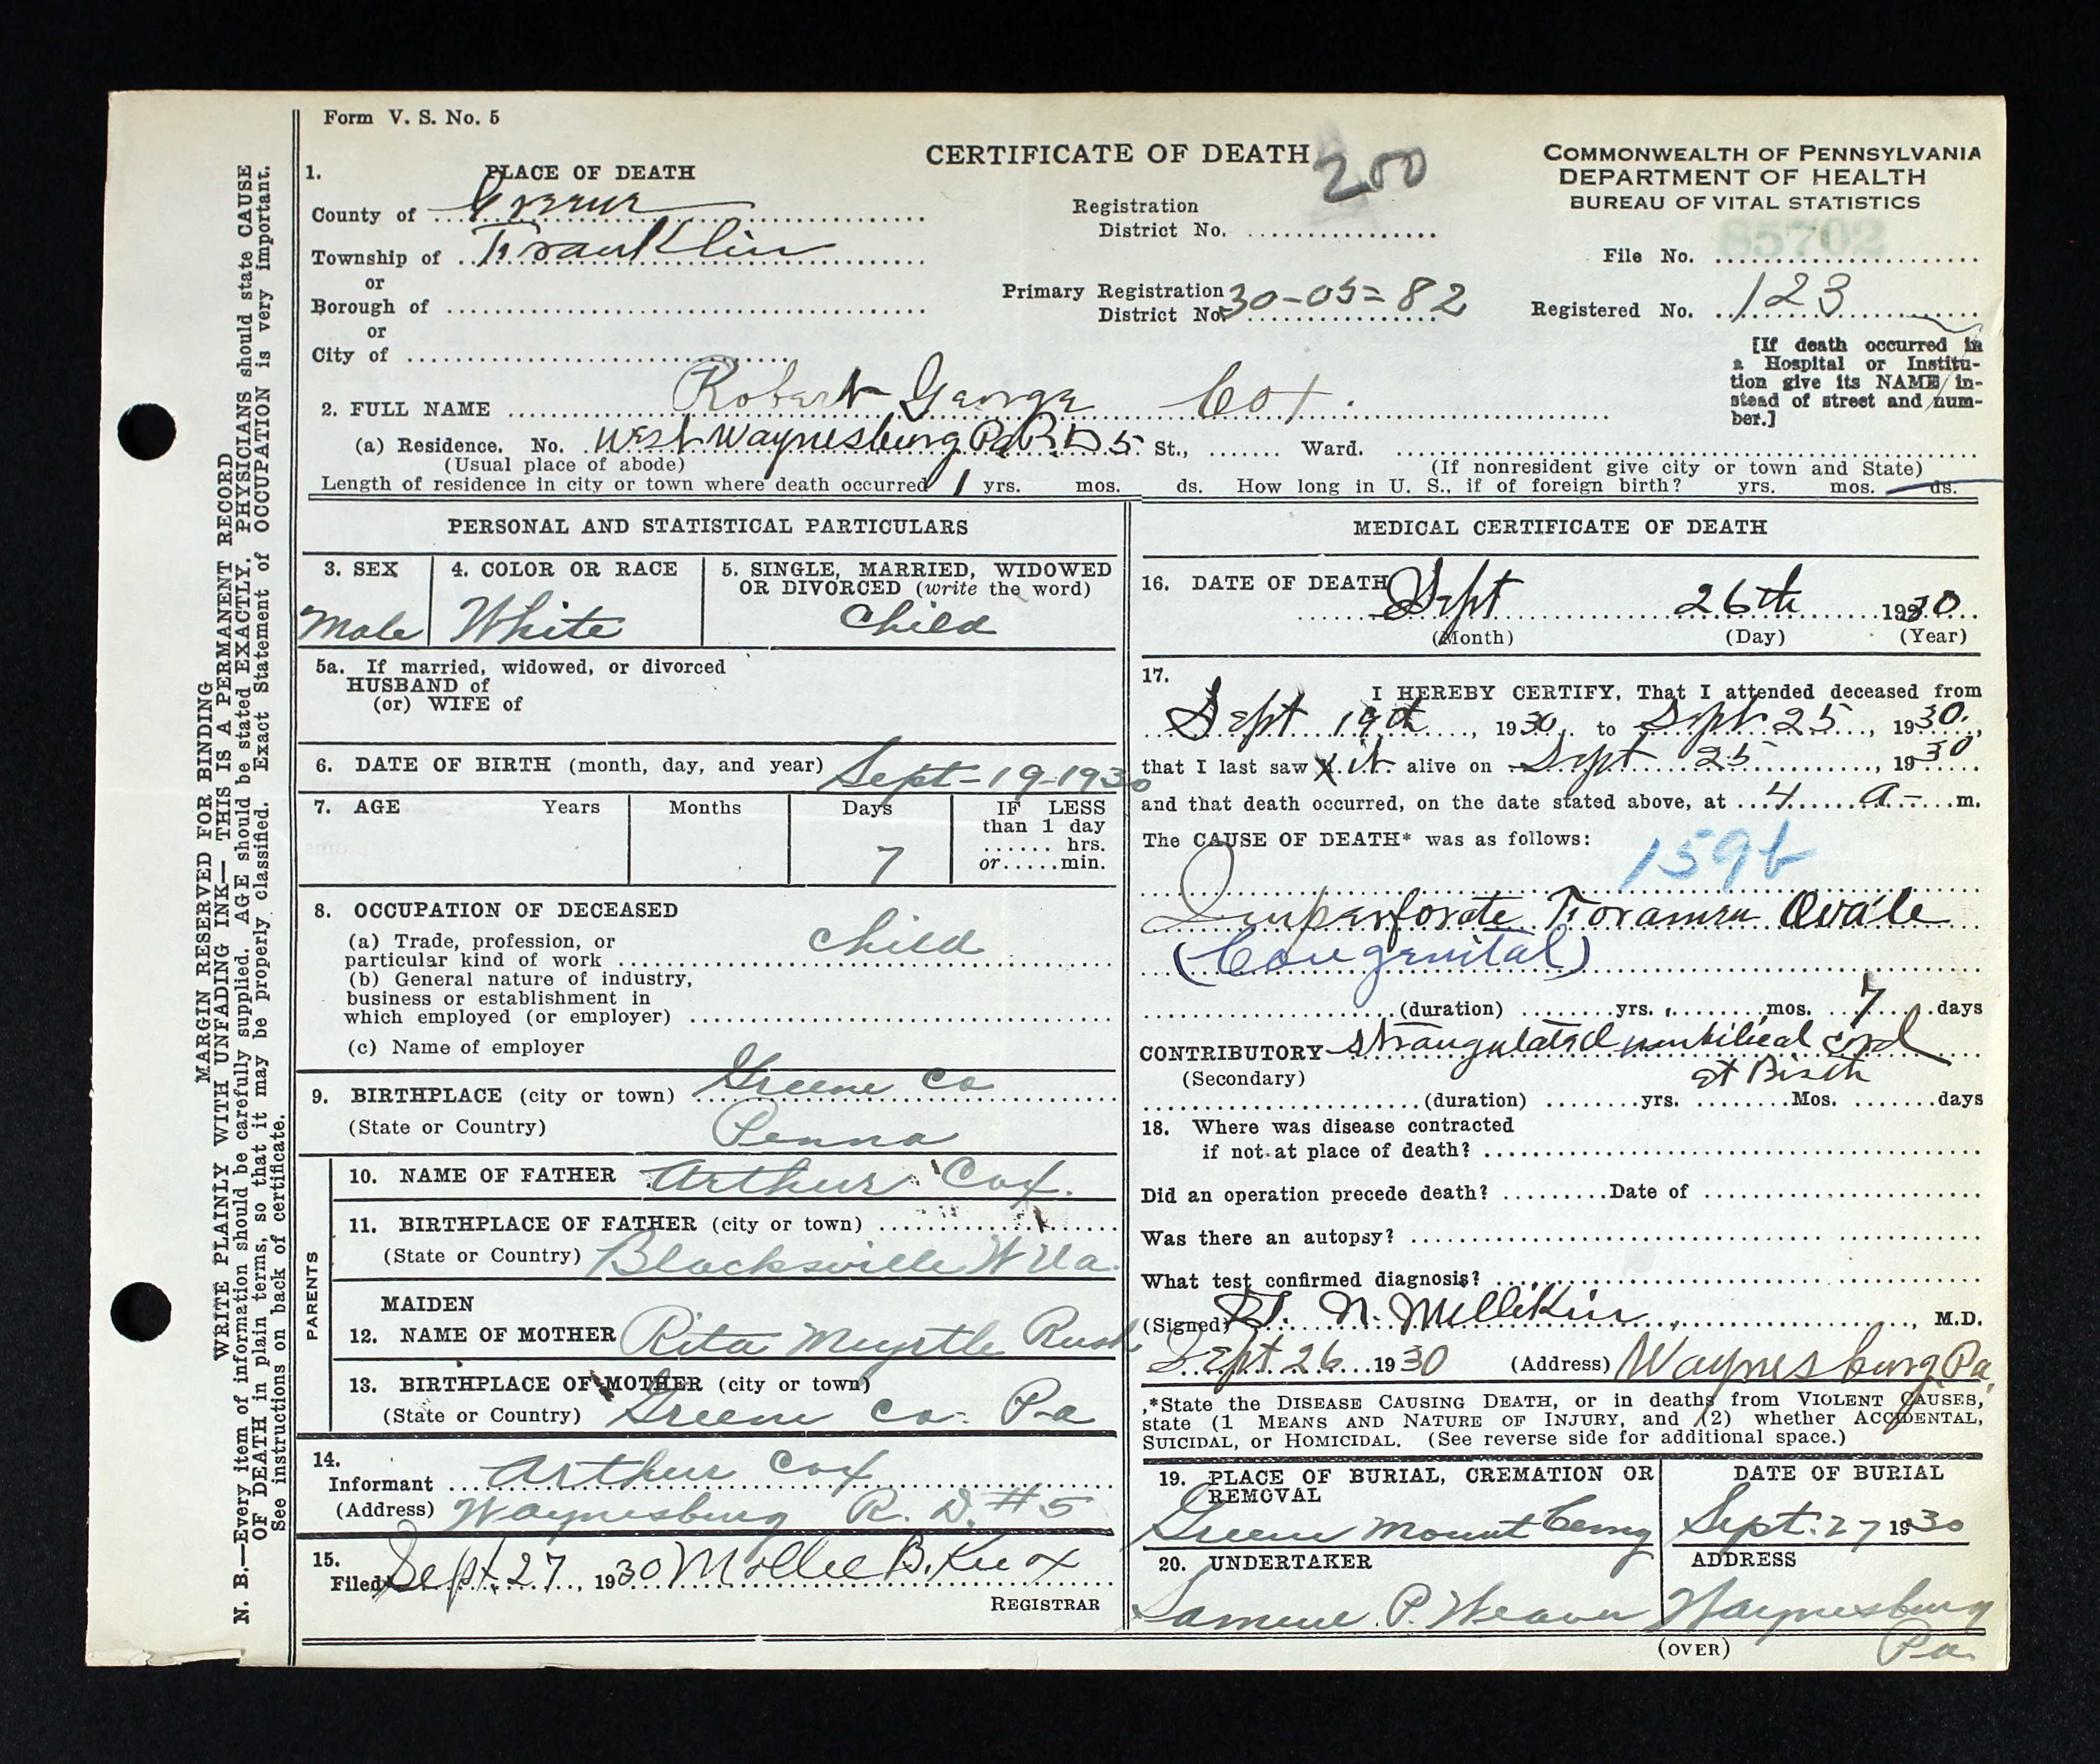 Form V. S. No. 5
CERTIFICATE OF DEATH
200
COMMONWEALTH OF PENNSYLVANIA
DEPARTMENT OF HEALTH
BUREAU OF VITAL STATISTICS
1. PLACE OF DEATH
County of Greene
Township of Franklin
or
Borough of
or
City of
Registration
District No.
Primary Registration
District No. 30-05-82
85702
File No.
Registered No. 123
[If death occurred in
a Hospital or Institu-
tion give its NAME in-
stead of street and num-
ber.]
2. FULL NAME Robert George Cox.
(a) Residence. No. West Waynesburg Pa R D 5 St., Ward.
(Usual place of abode) (If nonresident give city or town and State)
Length of residence in city or town where death occurred 1 yrs. mos. ds. How long in U. S., if of foreign birth? yrs. mos. ds.
PERSONAL AND STATISTICAL PARTICULARS
3. SEX
Male
4. COLOR OR RACE
White
5. SINGLE, MARRIED, WIDOWED
OR DIVORCED (write the word)
Child
5a. If married, widowed, or divorced
HUSBAND of
(or) WIFE of
6. DATE OF BIRTH (month, day, and year) Sept-19-1930
7. AGE Years Months Days IF LESS
than 1 day
hrs.
or min.
7
8. OCCUPATION OF DECEASED
(a) Trade, profession, or
particular kind of work child
(b) General nature of industry,
business or establishment in
which employed (or employer)
(c) Name of employer
9. BIRTHPLACE (city or town) Greene Co
(State or Country) Penna
PARENTS
10. NAME OF FATHER Arthur Cox.
11. BIRTHPLACE OF FATHER (city or town)
(State or Country) Blacksville W Va.
MAIDEN
12. NAME OF MOTHER Rita Myrtle Rush
13. BIRTHPLACE OF MOTHER (city or town)
(State or Country) Greene Co. Pa
14.
Informant Arthur Cox
(Address) Waynesburg R. D. #5
15.
Filed Sept. 27, 1930 Mollie B. Knox
REGISTRAR
MEDICAL CERTIFICATE OF DEATH
16. DATE OF DEATH
Sept 26th 1930
(Month) (Day) (Year)
17.
I HEREBY CERTIFY, That I attended deceased from
Sept 19th, 1930, to Sept 25, 1930,
that I last saw it alive on Sept 25, 1930
and that death occurred, on the date stated above, at 4 a-m.
The CAUSE OF DEATH* was as follows:
159b
Imperforate Foramen Ovale
(Congenital)
(duration) yrs. mos. 7 days
CONTRIBUTORY strangulated umbilical cord
(Secondary) at Birth
(duration) yrs. Mos. days
18. Where was disease contracted
if not at place of death?
Did an operation precede death? Date of
Was there an autopsy?
What test confirmed diagnosis?
(Signed) T. N. Millikin, M.D.
Sept 26 1930 (Address) Waynesburg Pa.
*State the DISEASE CAUSING DEATH, or in deaths from VIOLENT CAUSES,
state (1 MEANS AND NATURE OF INJURY, and (2) whether ACCIDENTAL,
SUICIDAL, or HOMICIDAL. (See reverse side for additional space.)
19. PLACE OF BURIAL, CREMATION OR
REMOVAL
Greene Mount Cemy
DATE OF BURIAL
Sept. 27 1930
20. UNDERTAKER
P. Weaver
ADDRESS
Waynesburg
Pa
(OVER)
MARGIN RESERVED FOR BINDING
WRITE PLAINLY WITH UNFADING INK—THIS IS A PERMANENT RECORD
N. B.—Every item of information should be carefully supplied. AGE should be stated EXACTLY. PHYSICIANS should state CAUSE
OF DEATH in plain terms, so that it may be properly classified. Exact Statement of OCCUPATION is very important.
See instructions on back of certificate.